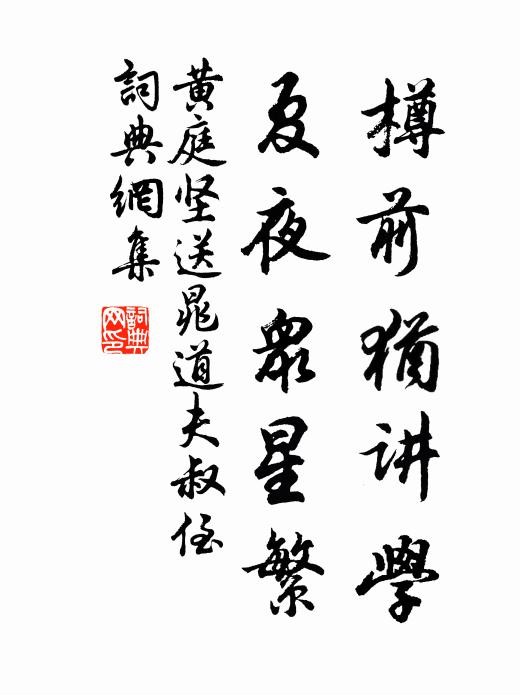 樽前猶讲學
夏夜衆星繁
黄庭坚送晁道夫叔侄
詞典網集
詞典网印